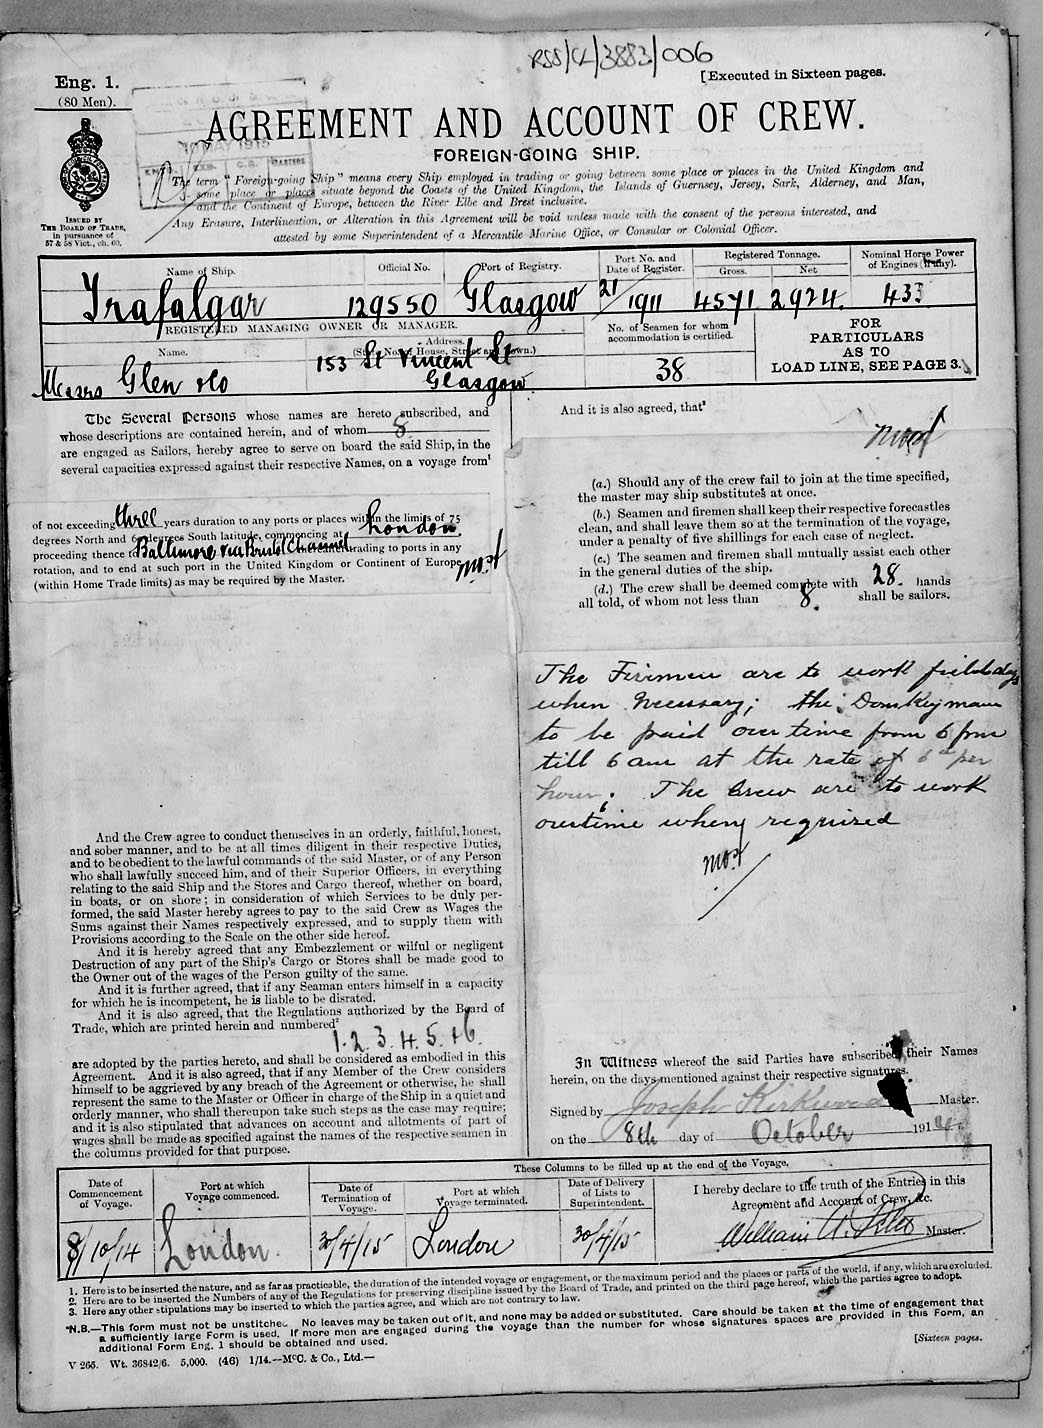 RSS/CL/3883/006
Eng. 1.
(80 Men).
[Executed in Sixteen pages.
AGREEMENT AND ACCOUNT OF CREW.
FOREIGN-GOING SHIP.
MAY 1915
ISSUED BY
THE BOARD OF TRADE,
in pursuance of
57 & 58 Vict., ch. 60.
The term "Foreign-going Ship" means every Ship employed in trading or going between some place or places in the United Kingdom and
some place or places situate beyond the Coasts of the United Kingdom, the Islands of Guernsey, Jersey, Sark, Alderney, and Man,
and the Continent of Europe, between the River Elbe and Brest inclusive.
Any Erasure, Interlineation, or Alteration in this Agreement will be void unless made with the consent of the persons interested, and
attested by some Superintendent of a Mercantile Marine Office, or Consular or Colonial Officer.
Name of Ship. Official No. Port of Registry. Port No. and Date of Register. Registered Tonnage. Gross. Net Nominal Horse Power of Engines (if any).
Trafalgar 129550 Glasgow 21/1911 4571 2924. 433
REGISTERED MANAGING OWNER OR MANAGER.
Name. Address. (State No. of House, Street and Town.)
No. of Seamen for whom accommodation is certified.
Messrs Glen & Co 153 St Vincent St Glasgow. 38
FOR
PARTICULARS
AS TO
LOAD LINE, SEE PAGE 3.
The Several Persons whose names are hereto subscribed, and
whose descriptions are contained herein, and of whom 8
are engaged as Sailors, hereby agree to serve on board the said Ship, in the
several capacities expressed against their respective Names, on a voyage from¹
of not exceeding three years duration to any ports or places within the limits of 75
degrees North and 60 degrees South latitude, commencing at London.
proceeding thence to Baltimore via Bristol Channel trading to ports in any
rotation, and to end at such port in the United Kingdom or Continent of Europe
(within Home Trade limits) as may be required by the Master.
And the Crew agree to conduct themselves in an orderly, faithful, honest,
and sober manner, and to be at all times diligent in their respective Duties,
and to be obedient to the lawful commands of the said Master, or of any Person
who shall lawfully succeed him, and of their Superior Officers, in everything
relating to the said Ship and the Stores and Cargo thereof, whether on board,
in boats, or on shore; in consideration of which Services to be duly per-
formed, the said Master hereby agrees to pay to the said Crew as Wages the
Sums against their Names respectively expressed, and to supply them with
Provisions according to the Scale on the other side hereof.
And it is hereby agreed that any Embezzlement or wilful or negligent
Destruction of any part of the Ship's Cargo or Stores shall be made good to
the Owner out of the wages of the Person guilty of the same.
And it is further agreed, that if any Seaman enters himself in a capacity
for which he is incompetent, he is liable to be disrated.
And it is also agreed, that the Regulations authorized by the Board of
Trade, which are printed herein and numbered²
1. 2. 3. 4. 5. + 6.
are adopted by the parties hereto, and shall be considered as embodied in this
Agreement. And it is also agreed, that if any Member of the Crew considers
himself to be aggrieved by any breach of the Agreement or otherwise, he shall
represent the same to the Master or Officer in charge of the Ship in a quiet and
orderly manner, who shall thereupon take such steps as the case may require;
and it is also stipulated that advances on account and allotments of part of
wages shall be made as specified against the names of the respective seamen in
the columns provided for that purpose.
And it is also agreed, that³
(a.) Should any of the crew fail to join at the time specified,
the master may ship substitutes at once.
(b.) Seamen and firemen shall keep their respective forecastles
clean, and shall leave them so at the termination of the voyage,
under a penalty of five shillings for each case of neglect.
(c.) The seamen and firemen shall mutually assist each other
in the general duties of the ship.
(d.) The crew shall be deemed complete with 28. hands
all told, of whom not less than 8. shall be sailors.
The Firemen are to work field days
when necessary; the Donkeyman
to be paid overtime from 6 pm
till 6 am at the rate of 6d per
hour; The Crew are to work
overtime when required
In Witness whereof the said Parties have subscribed their Names
herein, on the days mentioned against their respective signatures.
Signed by Joseph Kirkwood Master.
on the 8th day of October 1914
These Columns to be filled up at the end of the Voyage.
Date of Commencement of Voyage. Port at which Voyage commenced. Date of Termination of Voyage. Port at which Voyage terminated. Date of Delivery of Lists to Superintendent.
I hereby declare to the truth of the Entries in this
Agreement and Account of Crew, &c.
8/10/14 London. 30/4/15 London 30/4/15 William A. Master.
1. Here is to be inserted the nature, and as far as practicable, the duration of the intended voyage or engagement, or the maximum period and the places or parts of the world, if any, which are excluded.
2. Here are to be inserted the Numbers of any of the Regulations for preserving discipline issued by the Board of Trade, and printed on the third page hereof, which the parties agree to adopt.
3. Here any other stipulations may be inserted to which the parties agree, and which are not contrary to law.
*N.B.—This form must not be unstitched. No leaves may be taken out of it, and none may be added or substituted. Care should be taken at the time of engagement that
a sufficiently large Form is used. If more men are engaged during the voyage than the number for whose signatures spaces are provided in this Form, an
additional Form Eng. 1 should be obtained and used.
[Sixteen pages.
V 265. Wt. 36842/6. 5,000. (46) 1/14.—McC. & Co., Ltd.—